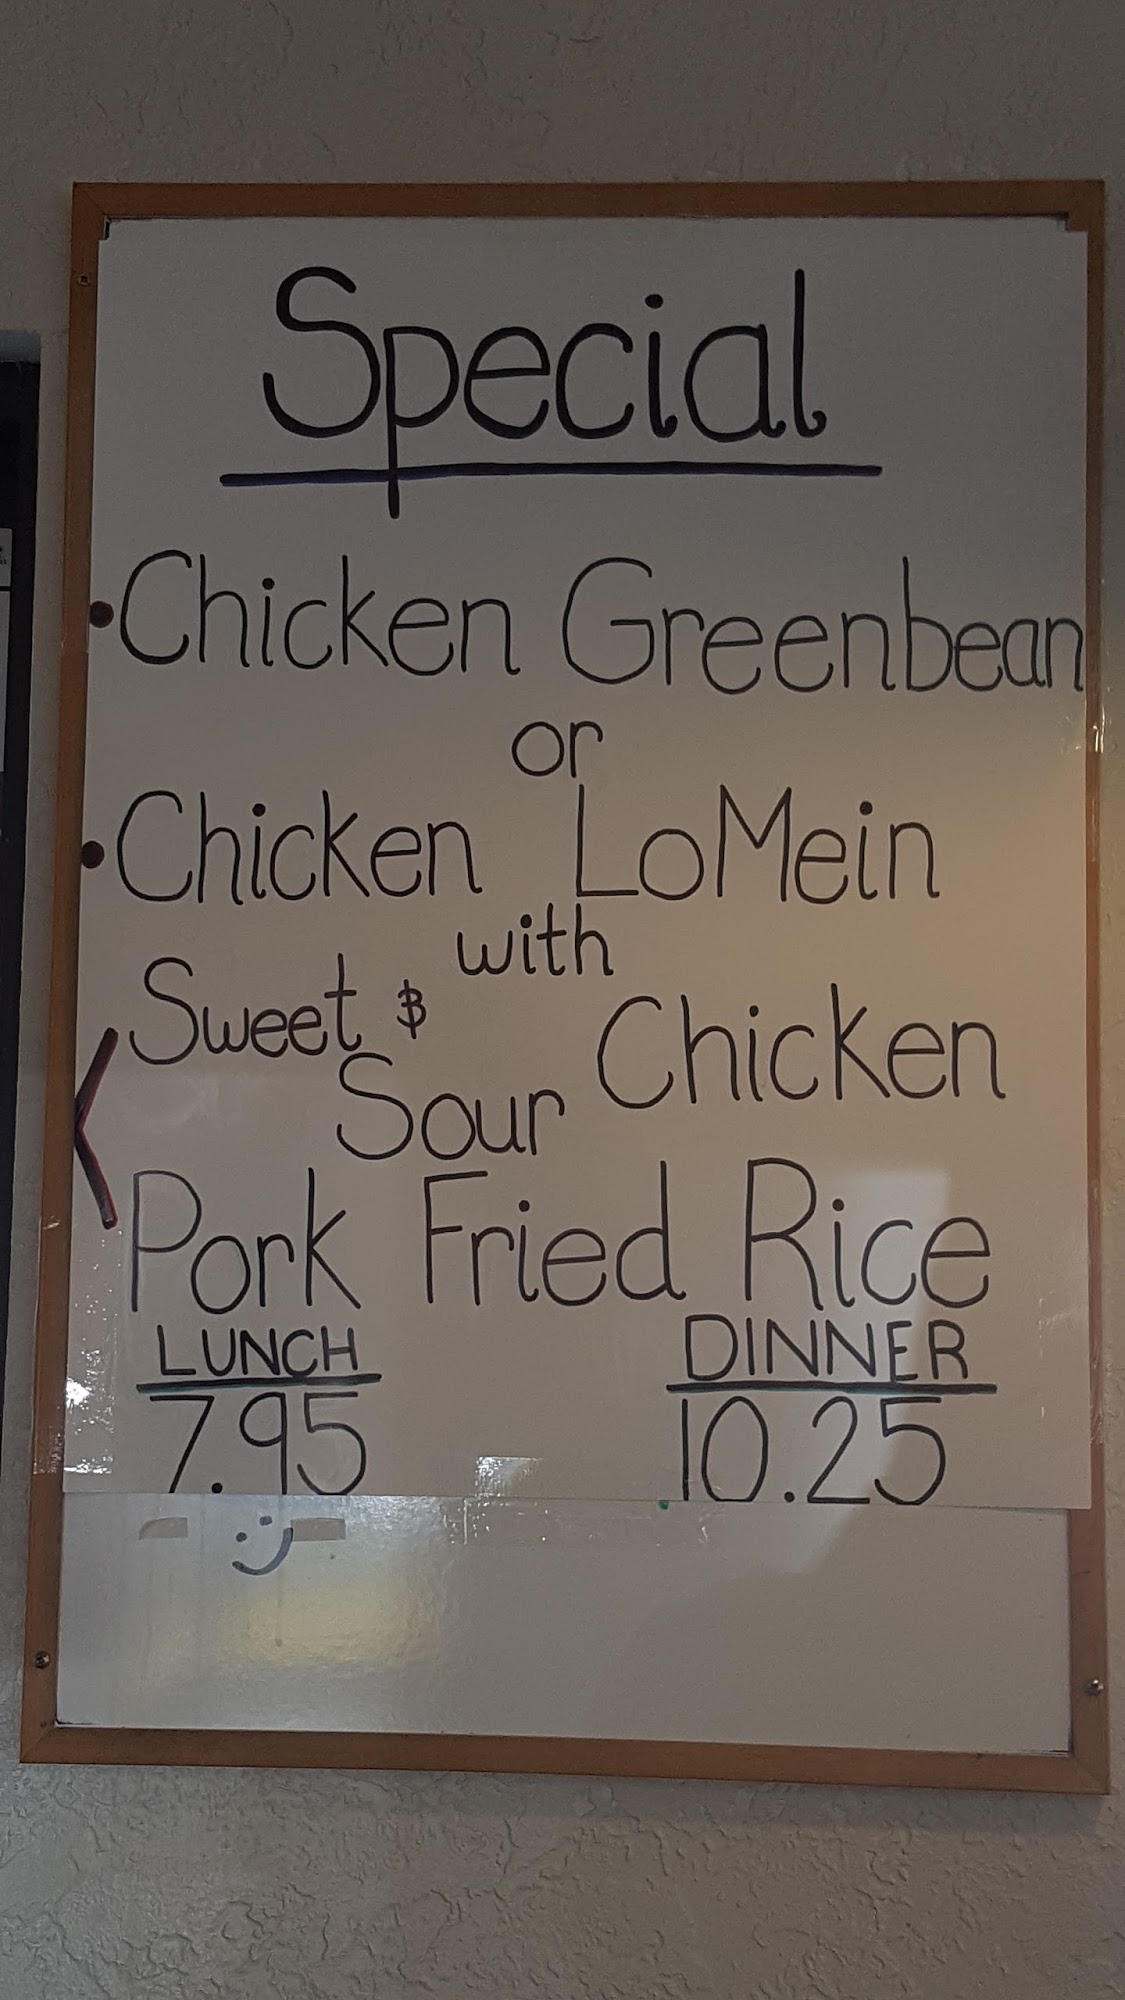 Special
•Chicken Greenbean
or
•Chicken LoMein
with
Sweet & Sour Chicken
Pork Fried Rice
LUNCH DINNER
7.95 10.25